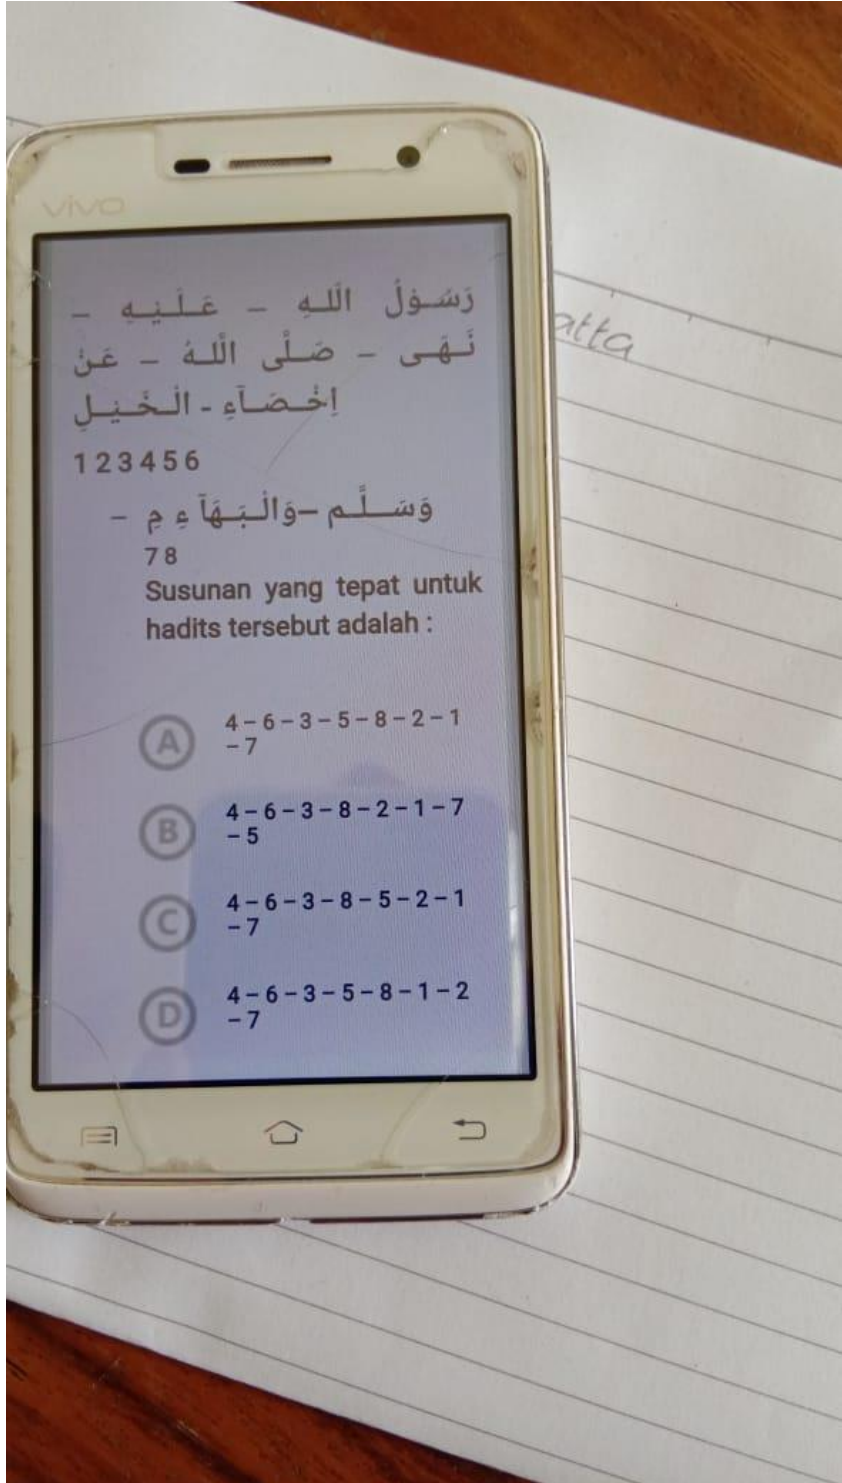 vivo
رَسُوْلُ اللهِ – عَلَيْهِ –
نَهَى – صَلَّى اللهُ – عَنْ
اِخْصَآءِ - الْخَيْلِ
1 2 3 4 5 6
وَسَلَّم –وَالْبَهَآ ءِ مِ –
7 8
Susunan yang tepat untuk
hadits tersebut adalah :
A 4 – 6 – 3 – 5 – 8 – 2 – 1
– 7
B 4 – 6 – 3 – 8 – 2 – 1 – 7
– 5
C 4 – 6 – 3 – 8 – 5 – 2 – 1
– 7
D 4 – 6 – 3 – 5 – 8 – 1 – 2
– 7
atta